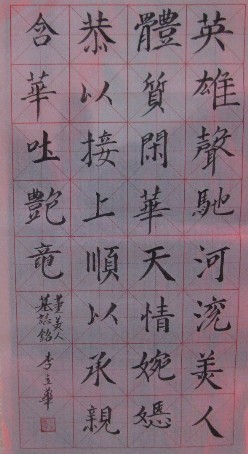 英雄聲馳河渷美人
體質閑華天情婉嫕
恭以接上順以承親
含華吐艷竜
董美人
墓誌銘
李立華